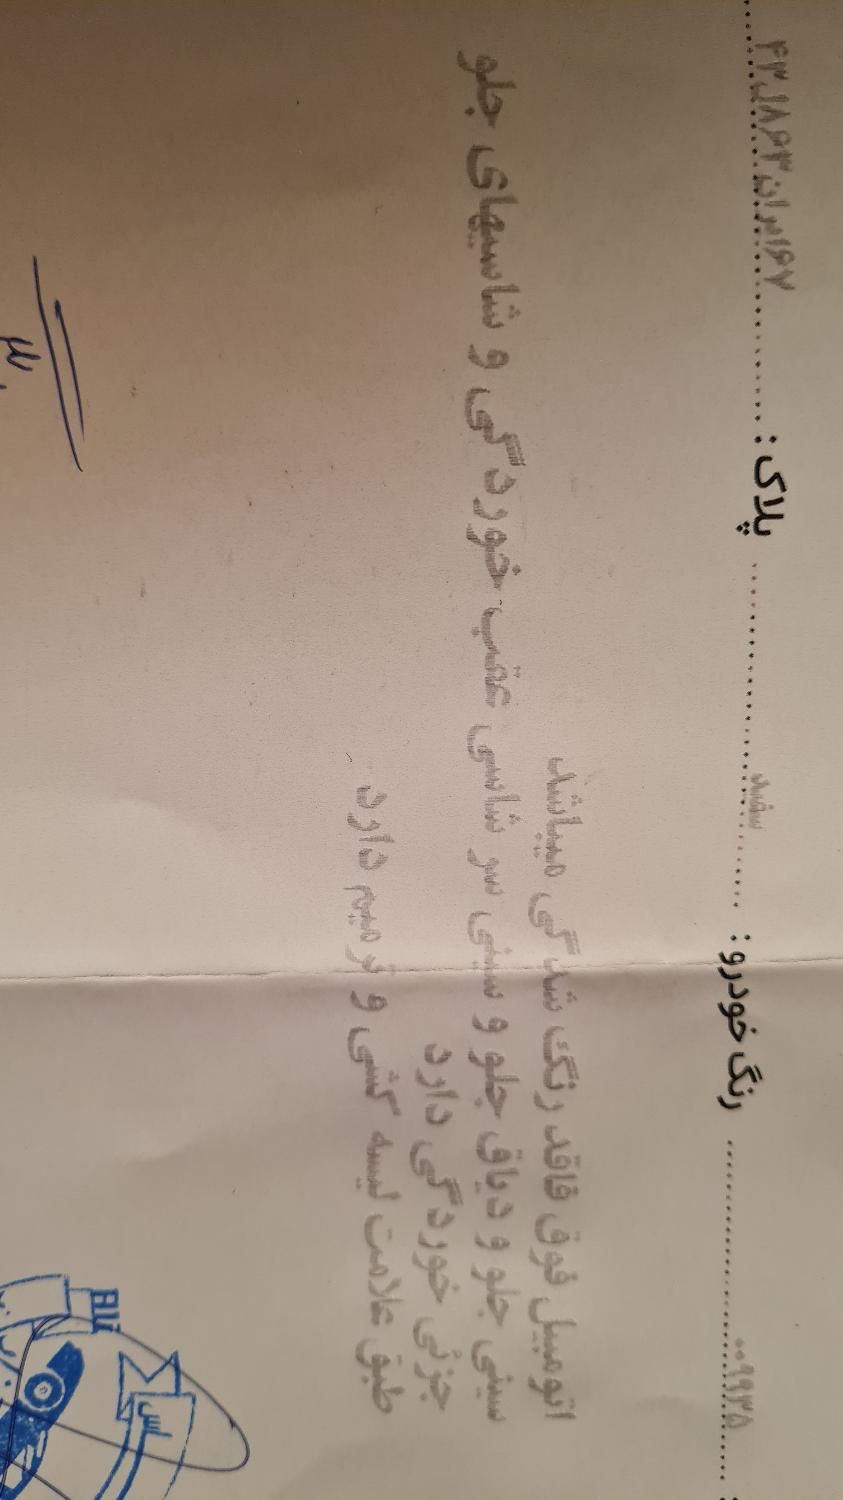 ۰۰۹۹۳۵ رنگ خودرو: سفید پلاک: ۴۳ل۸۶۳ایران۶۷
اتومبیل فوق فاقد رنگ شدگی میباشد
سینی جلو و دیاق جلو و سینی سر شاسی عقب خوردگی و شاسیهای جلو
جزئی خوردگی دارد
طبق علامت لیسه کشی و ترمیم دارد